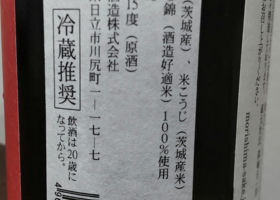 茨城産)、米こうじ(茨城産米)
錦(酒造好適米)100%使用
15度(原酒)
酒造株式会社
県日立市川尻町一ー一七ー七
冷蔵推奨
飲酒は20歳に
なってから。
morishima